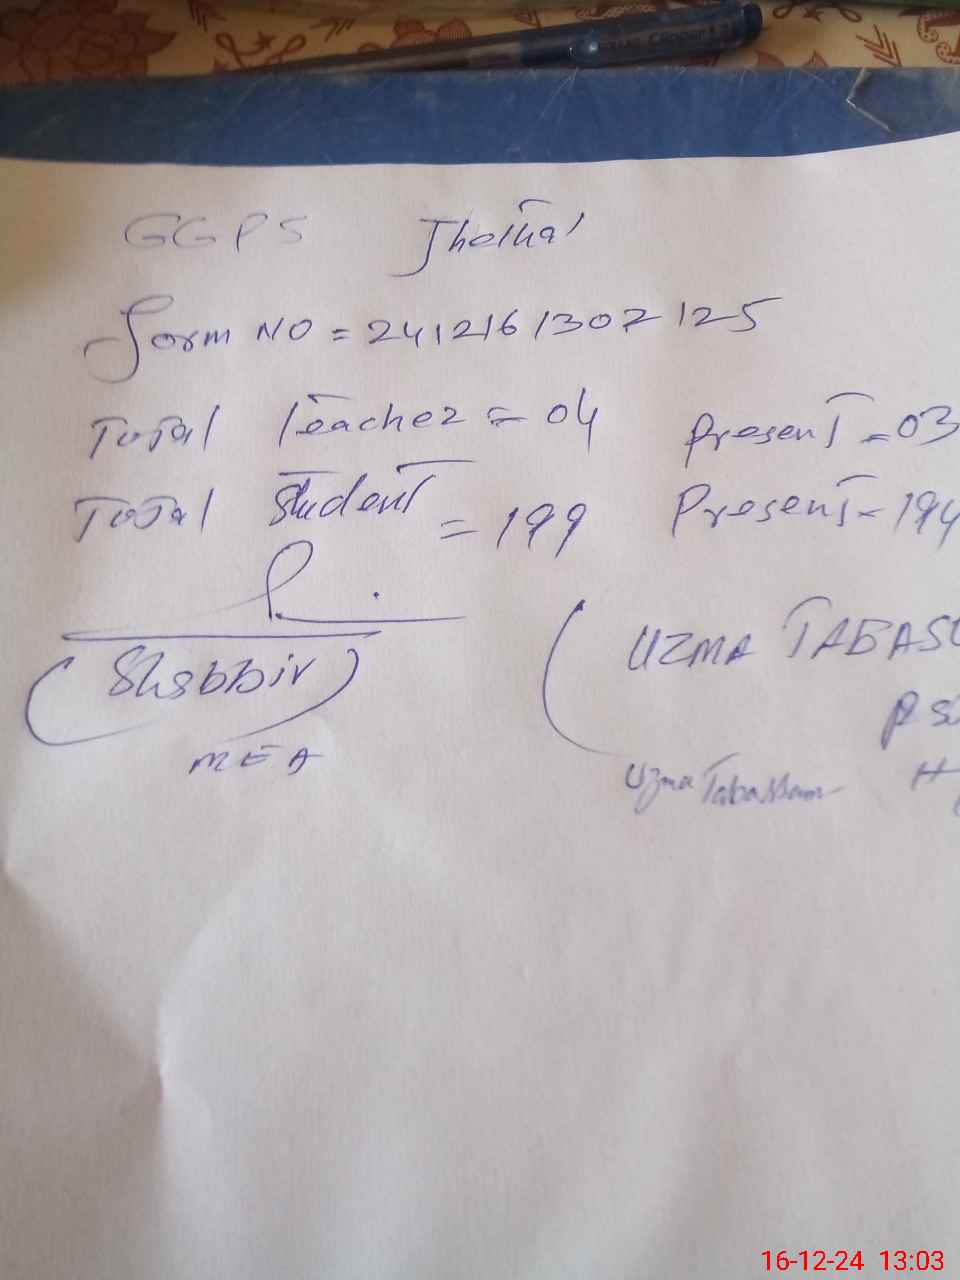 Clipper
GGPS Jhethal
Form NO = 241216 1302 125
Total Teacher = 04 Present = 03
Total Student = 199 Present = 194
(Shabbir) (UZMA TABASU
MEA
Uzma Tabassam
16-12-24 13:03